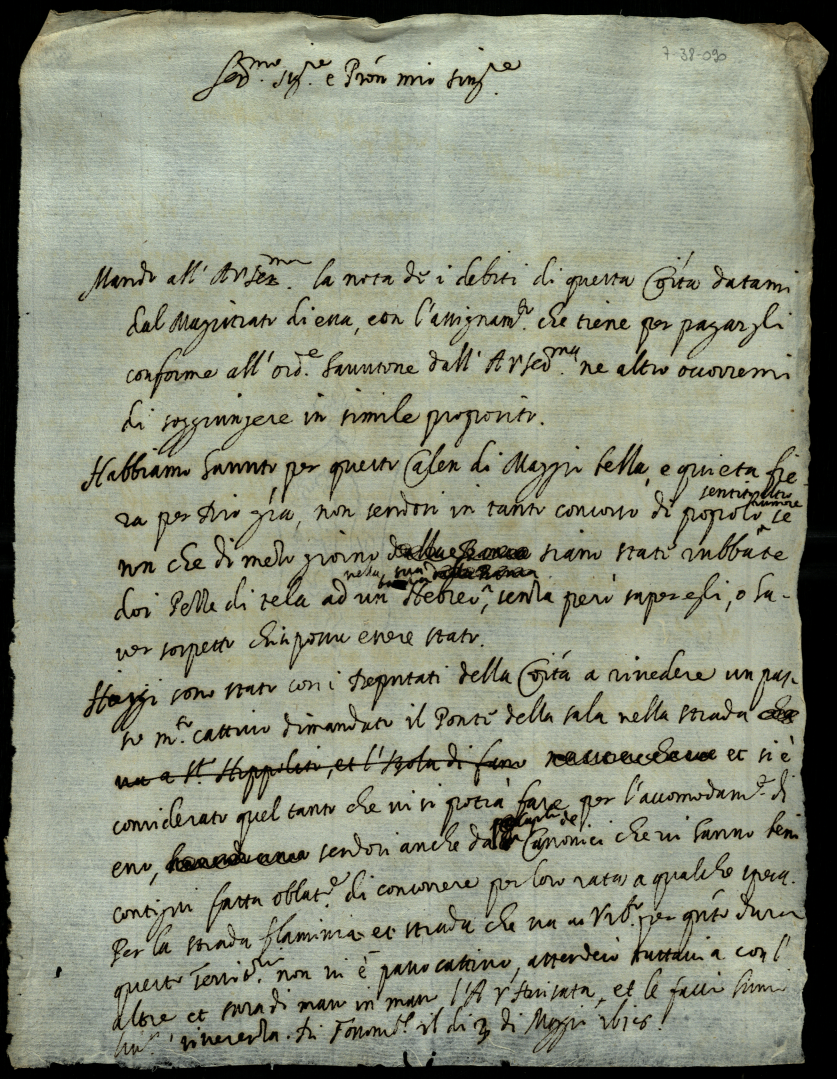 7-38-090
Ser.mo Sig.re e Pron mio sing.re
Mando all' A V Ser.ma la nota de i debiti di questa Co͠ità datami
dal Magistrato di essa, con l'assignam.to che tiene per pagargli
conforme all' ord.e havutone dall' A V Ser.ma ne altro occorremi
di soggiungere in simile proposito.
Habbiamo havuto per questo Calen di Maggio bella, e quieta fie-
ra per Dio gra, non sendosi in tanto concorso di popolo sentito altro rumore, se
non che di mezzo giorno siano state rubbate
doi Pezze di tela ad un Hebreo nella sua, senza però sapersegli, o ha-
ver sospetto chi possa essere stato.
Hoggi sono stato con i Deputati della Co͠ità a rivedere un pas-
so m.to cattivo dimandato il Ponte della sala nella strada
va a S.to Hippolito, et l'Isola di fano et si è
considerato quel tanto che vi si potrà fare per l'accomodam.to di
esso, sendosi anche da Canonici che vi hanno beni
contigui fatta oblat.e di concorrere per loro rata a qualche spesa.
Per la strada flaminia et strada che va a Urb.o per q͠nto dura
questo Territ.o non vi è passo cattivo, attenderò tuttavia a con l'
altre et sarà di mano in mano l'A V Avisata, et le faccio humi
riverenza. Di Fossomb.e il di 3 di Maggio 1618.